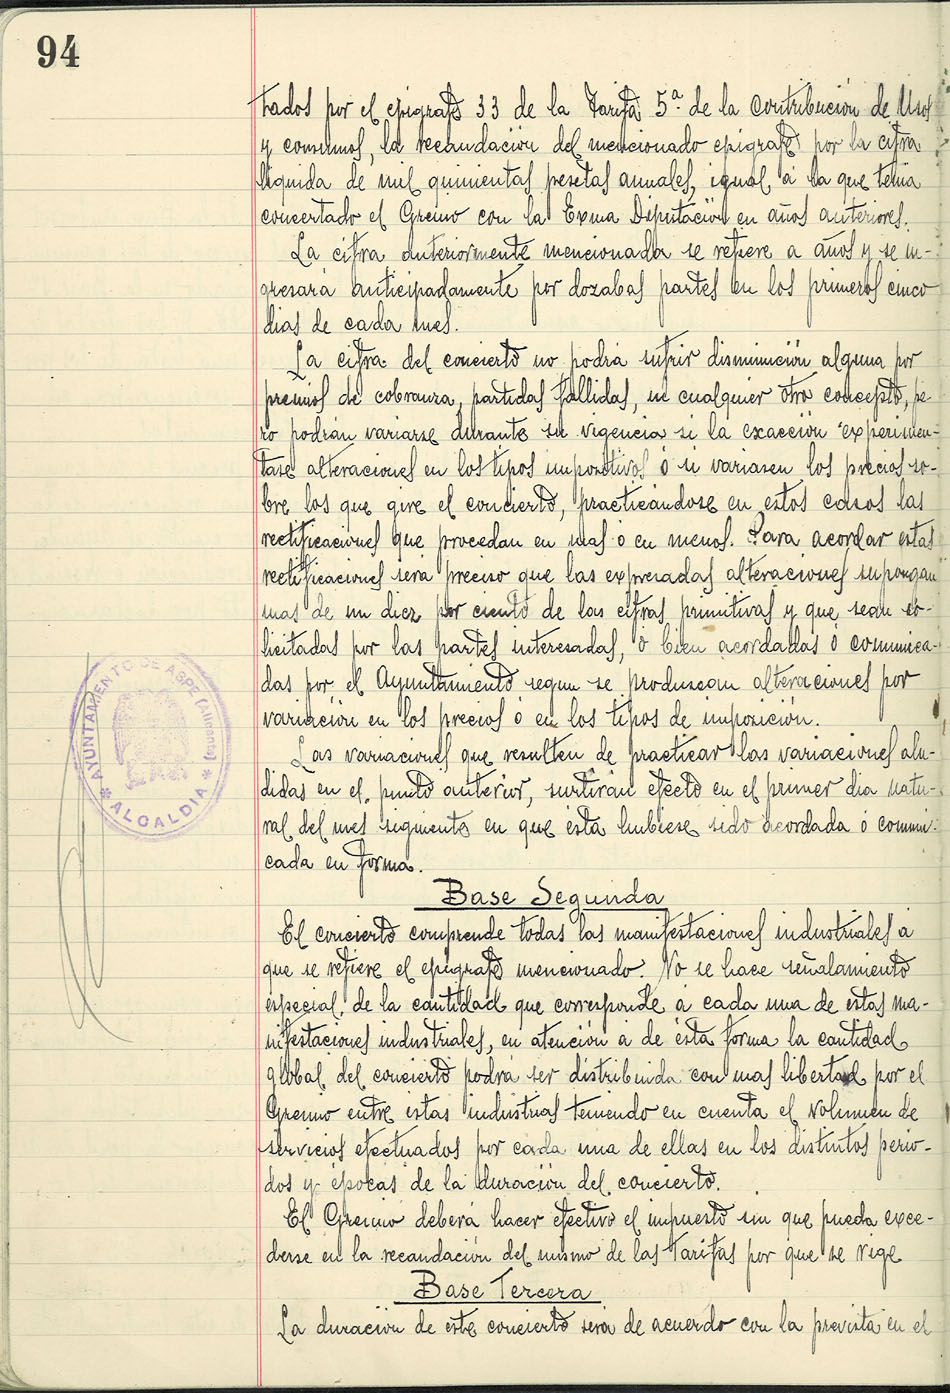 94
tados por el epigrafe 33 de la Tarifa 5ª de la Contribución de Usos
y consumos, la recaudación del mencionado epigrafe por la cifra
liquida de mil quinientas pesetas anuales, igual a la que tenia
concertado el Gremio con la Exma Diputación en años anteriores.
La cifra anteriormente mencionada se refiere a años y se in-
gresará anticipadamente por dozabas partes en los primeros cinco
dias de cada mes.
La cifra del concierto no podrá sufrir disminución alguna por
premios de cobranza, partidas fallidas, ni cualquier otro concepto, pe-
ro podrán variarse durante su vigencia si la exacción experimen-
tase alteraciones en los tipos impositivos ó si variasen los precios so-
bre los que gire el concierto, practicándose en estos casos las
rectificaciones que procedan en mas ó en menos. Para acordar estas
rectificaciones será preciso que las expresadas alteraciones supongan
mas de un diez por ciento de las cifras primitivas y que sean so-
licitadas por las partes interesadas, ó bien acordadas ó comunica-
das por el Ayuntamiento segun se produzcan alteraciones por
variación en los precios ó en los tipos de imposición.
Las variaciones que resulten de practicar las variaciones alu-
didas en el punto anterior, surtirán efecto en el primer dia natu-
ral del mes siguiente en que ésta hubiese sido acordada ó comuni-
cada en forma.
Base Segunda
El concierto comprende todas las manifestaciones industriales á
que se refiere el epigrafe mencionado. No se hace señalamiento
especial de la cantidad que corresponde á cada una de estas ma-
nifestaciones industriales, en atención á de ésta forma la cantidad
global del concierto podrá ser distribuida con mas libertad por el
Gremio entre éstas industrias teniendo en cuenta el volumen de
servicios efectuados por cada una de ellas en los distintos perio-
dos y épocas de la duración del concierto.
El Gremio deberá hacer efectivo el impuesto sin que pueda exce-
derse en la recaudación del mismo de las Tarifas por que se rige
Base Tercera
La duración de este concierto será de acuerdo con la prevista en el
AYUNTAMIENTO DE ASPE (Alicante)
* ALCALDIA *